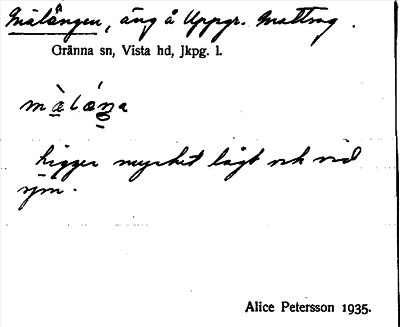 Målängen, äng å Uppgr. Mattsog.
Gränna sn, Vista hd, Jkpg. l.
ligger mycket lågt och vid
sjön.
Alice Petersson 1935.